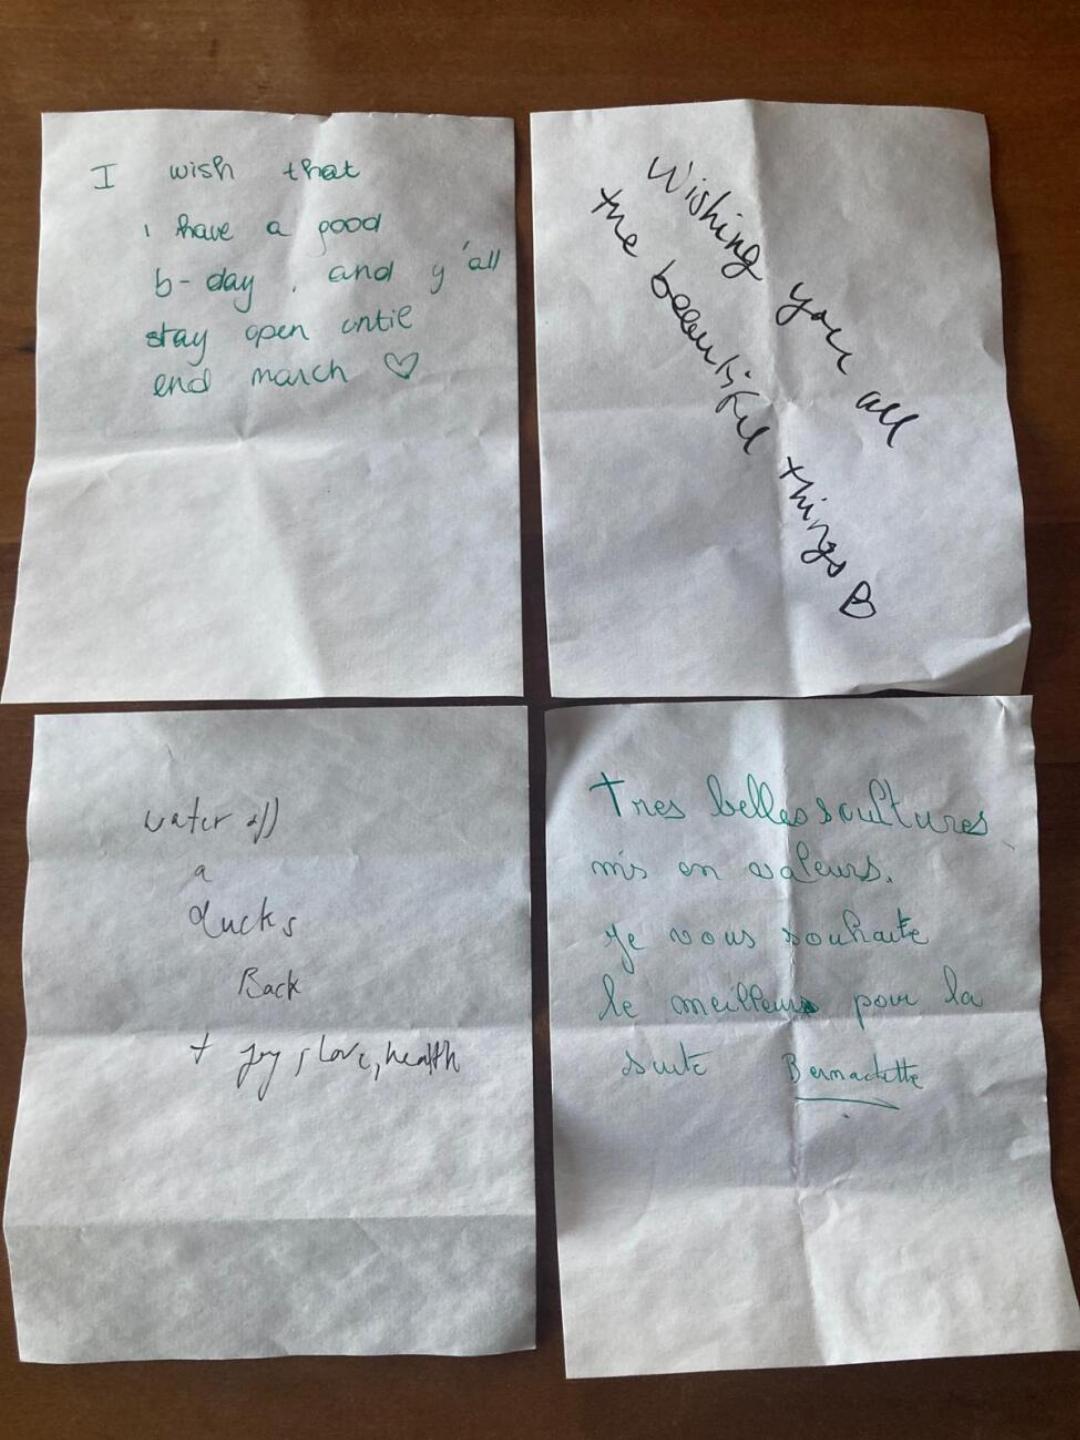 I wish that
i have a good
b-day, and y'all
stay open until
end march ♡
Wishing you all
the beautiful things ♡
water off
a
ducks
Back
+ joy, love, health
Tres belles scultures
mis en valeurs.
Je vous souhaite
le meilleur pour la
suite Bernadette